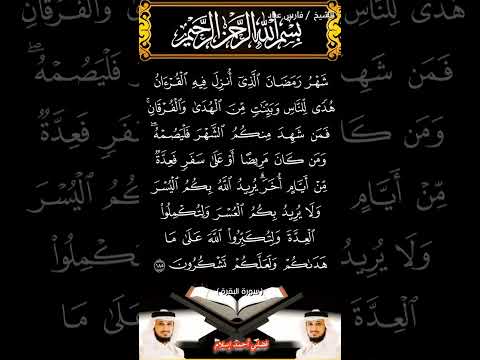 الشيخ / فارس عباد
بِسْمِ ٱللَّهِ ٱلرَّحْمَٰنِ ٱلرَّحِيمِ
شَهْرُ رَمَضَانَ ٱلَّذِىٓ أُنزِلَ فِيهِ ٱلْقُرْءَانُ
هُدًى لِّلنَّاسِ وَبَيِّنَٰتٍ مِّنَ ٱلْهُدَىٰ وَٱلْفُرْقَانِۚ
فَمَن شَهِدَ مِنكُمُ ٱلشَّهْرَ فَلْيَصُمْهُۖ
وَمَن كَانَ مَرِيضًا أَوْ عَلَىٰ سَفَرٍ فَعِدَّةٌ
مِّنْ أَيَّامٍ أُخَرَۗ يُرِيدُ ٱللَّهُ بِكُمُ ٱلْيُسْرَ
وَلَا يُرِيدُ بِكُمُ ٱلْعُسْرَ وَلِتُكْمِلُوا۟
ٱلْعِدَّةَ وَلِتُكَبِّرُوا۟ ٱللَّهَ عَلَىٰ مَا
هَدَىٰكُمْ وَلَعَلَّكُمْ تَشْكُرُونَ ١٨٥
(سورة البقرة)